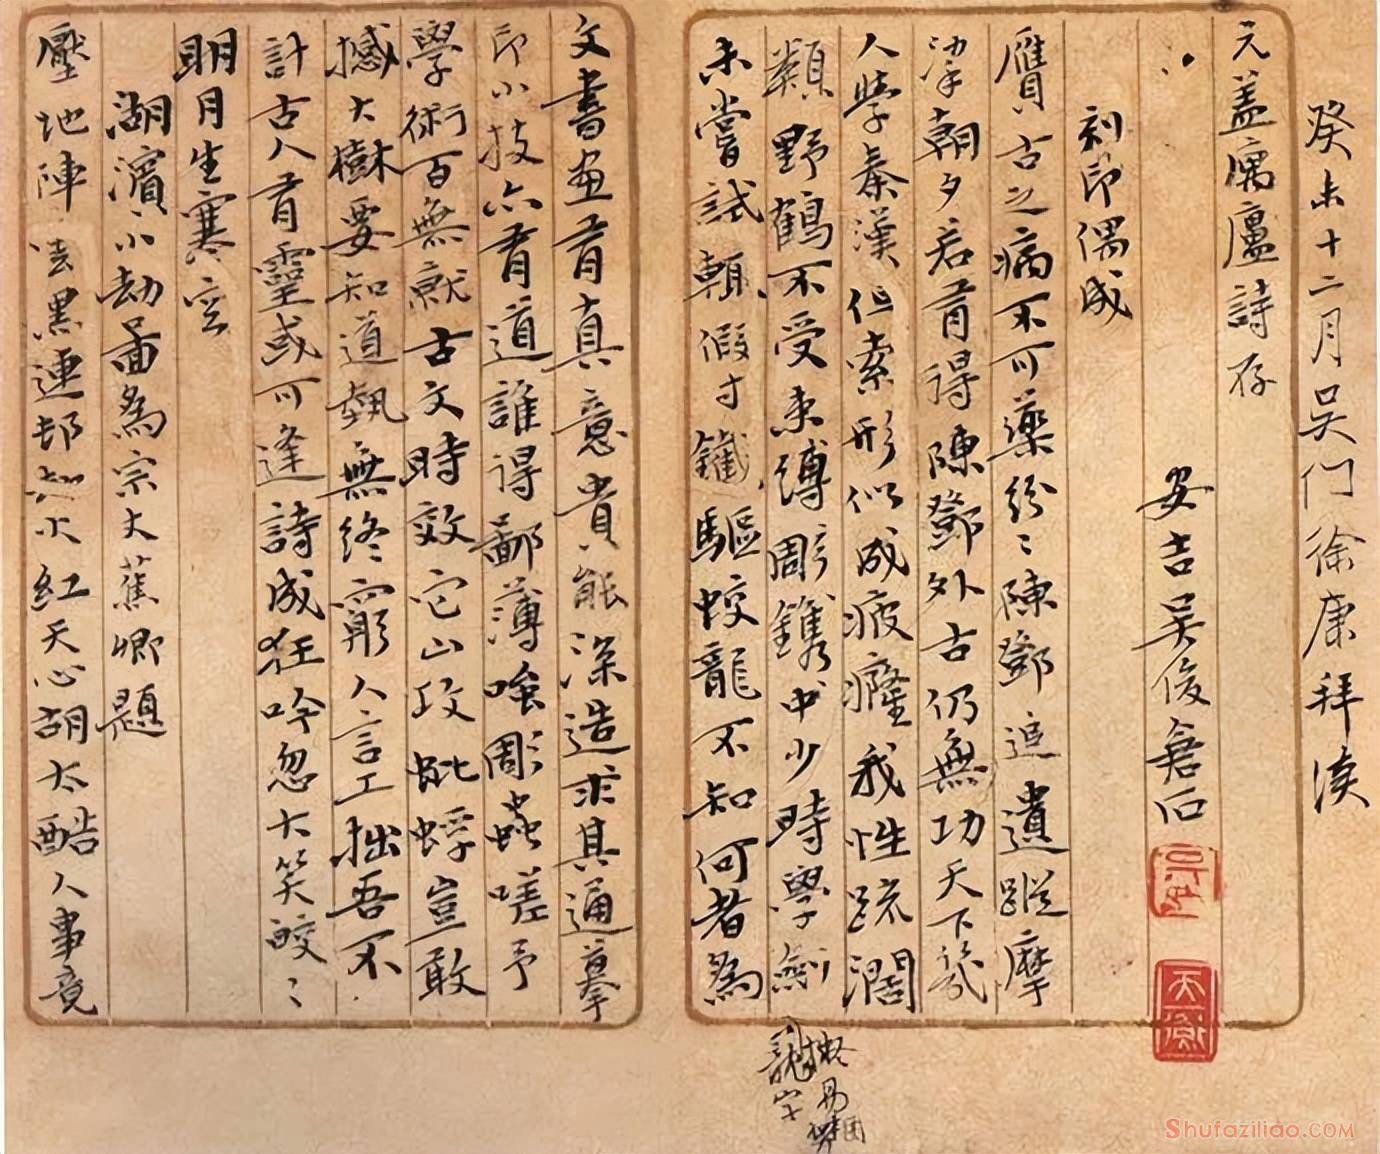 癸未十二月吴门徐康拜读
元盖寓廬詩存
安吉吴俊倉石
刻印偶成
贋古之病不可藥紛紛陳鄧追遺蹤摩
挲朝夕若有得陳鄧外古仍無功天下幾
人學秦漢但索形似成疲癃我性疏闊
類野鶴不受束縛雕鐫中少時學劍
未嘗試輒假寸鐵驅蛟龍不知何者為
文書畫有真意貴能深造求其通摹
印小技亦有道誰得鄙薄嗤雕蟲嗟予
學術百無就古文時效它山攻蚍蜉豈敢
撼大樹要知道藝無終窮人言工拙吾不
計古人有靈或可逢詩成狂吟忽大笑皎皎
明月生寒空
湖濱小劫圖為宗大蕉卿題
壓地陣雲黑連邨烈火紅天心胡太酷人事竟
擬易
龍字
Shufaziliao.COM